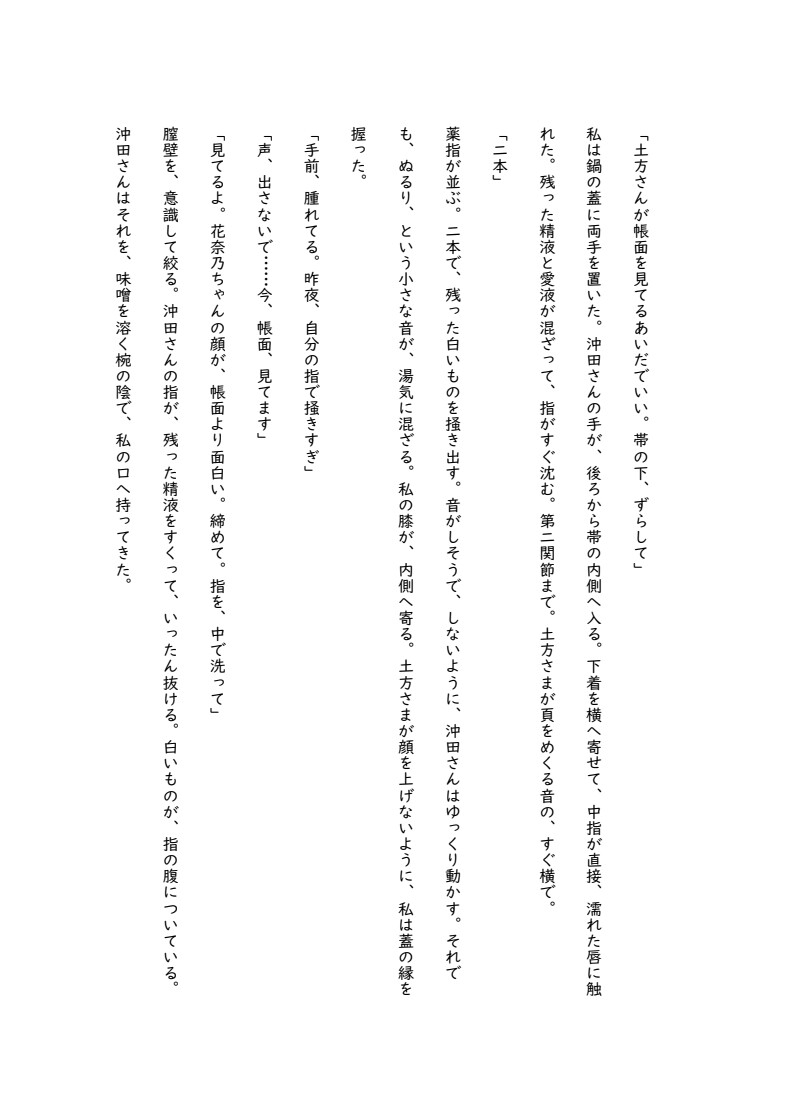 「土方さんが帳面を見てるあいだでいい。帯の下、ずらして」
私は鍋の蓋に両手を置いた。沖田さんの手が、後ろから帯の内側へ入る。下着を横へ寄せて、中指が直接、濡れた唇に触
れた。残った精液と愛液が混ざって、指がすぐ沈む。第二関節まで。土方さまが頁をめくる音の、すぐ横で。
「二本」
薬指が並ぶ。二本で、残った白いものを掻き出す。音がしそうで、しないように、沖田さんはゆっくり動かす。それで
も、ぬるり、という小さな音が、湯気に混ざる。私の膝が、内側へ寄る。土方さまが顔を上げないように、私は蓋の縁を
握った。
「手前、腫れてる。昨夜、自分の指で掻きすぎ」
「声、出さないで……今、帳面、見てます」
「見てるよ。花奈乃ちゃんの顔が、帳面より面白い。締めて。指を、中で洗って」
膣壁を、意識して絞る。沖田さんの指が、残った精液をすくって、いったん抜ける。白いものが、指の腹についている。
沖田さんはそれを、味噌を溶く椀の陰で、私の口へ持ってきた。